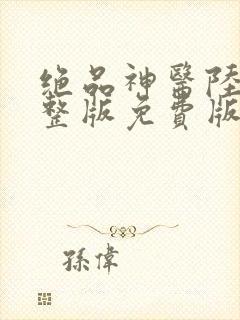 絕品神醫陸
整版免費版
孫偉